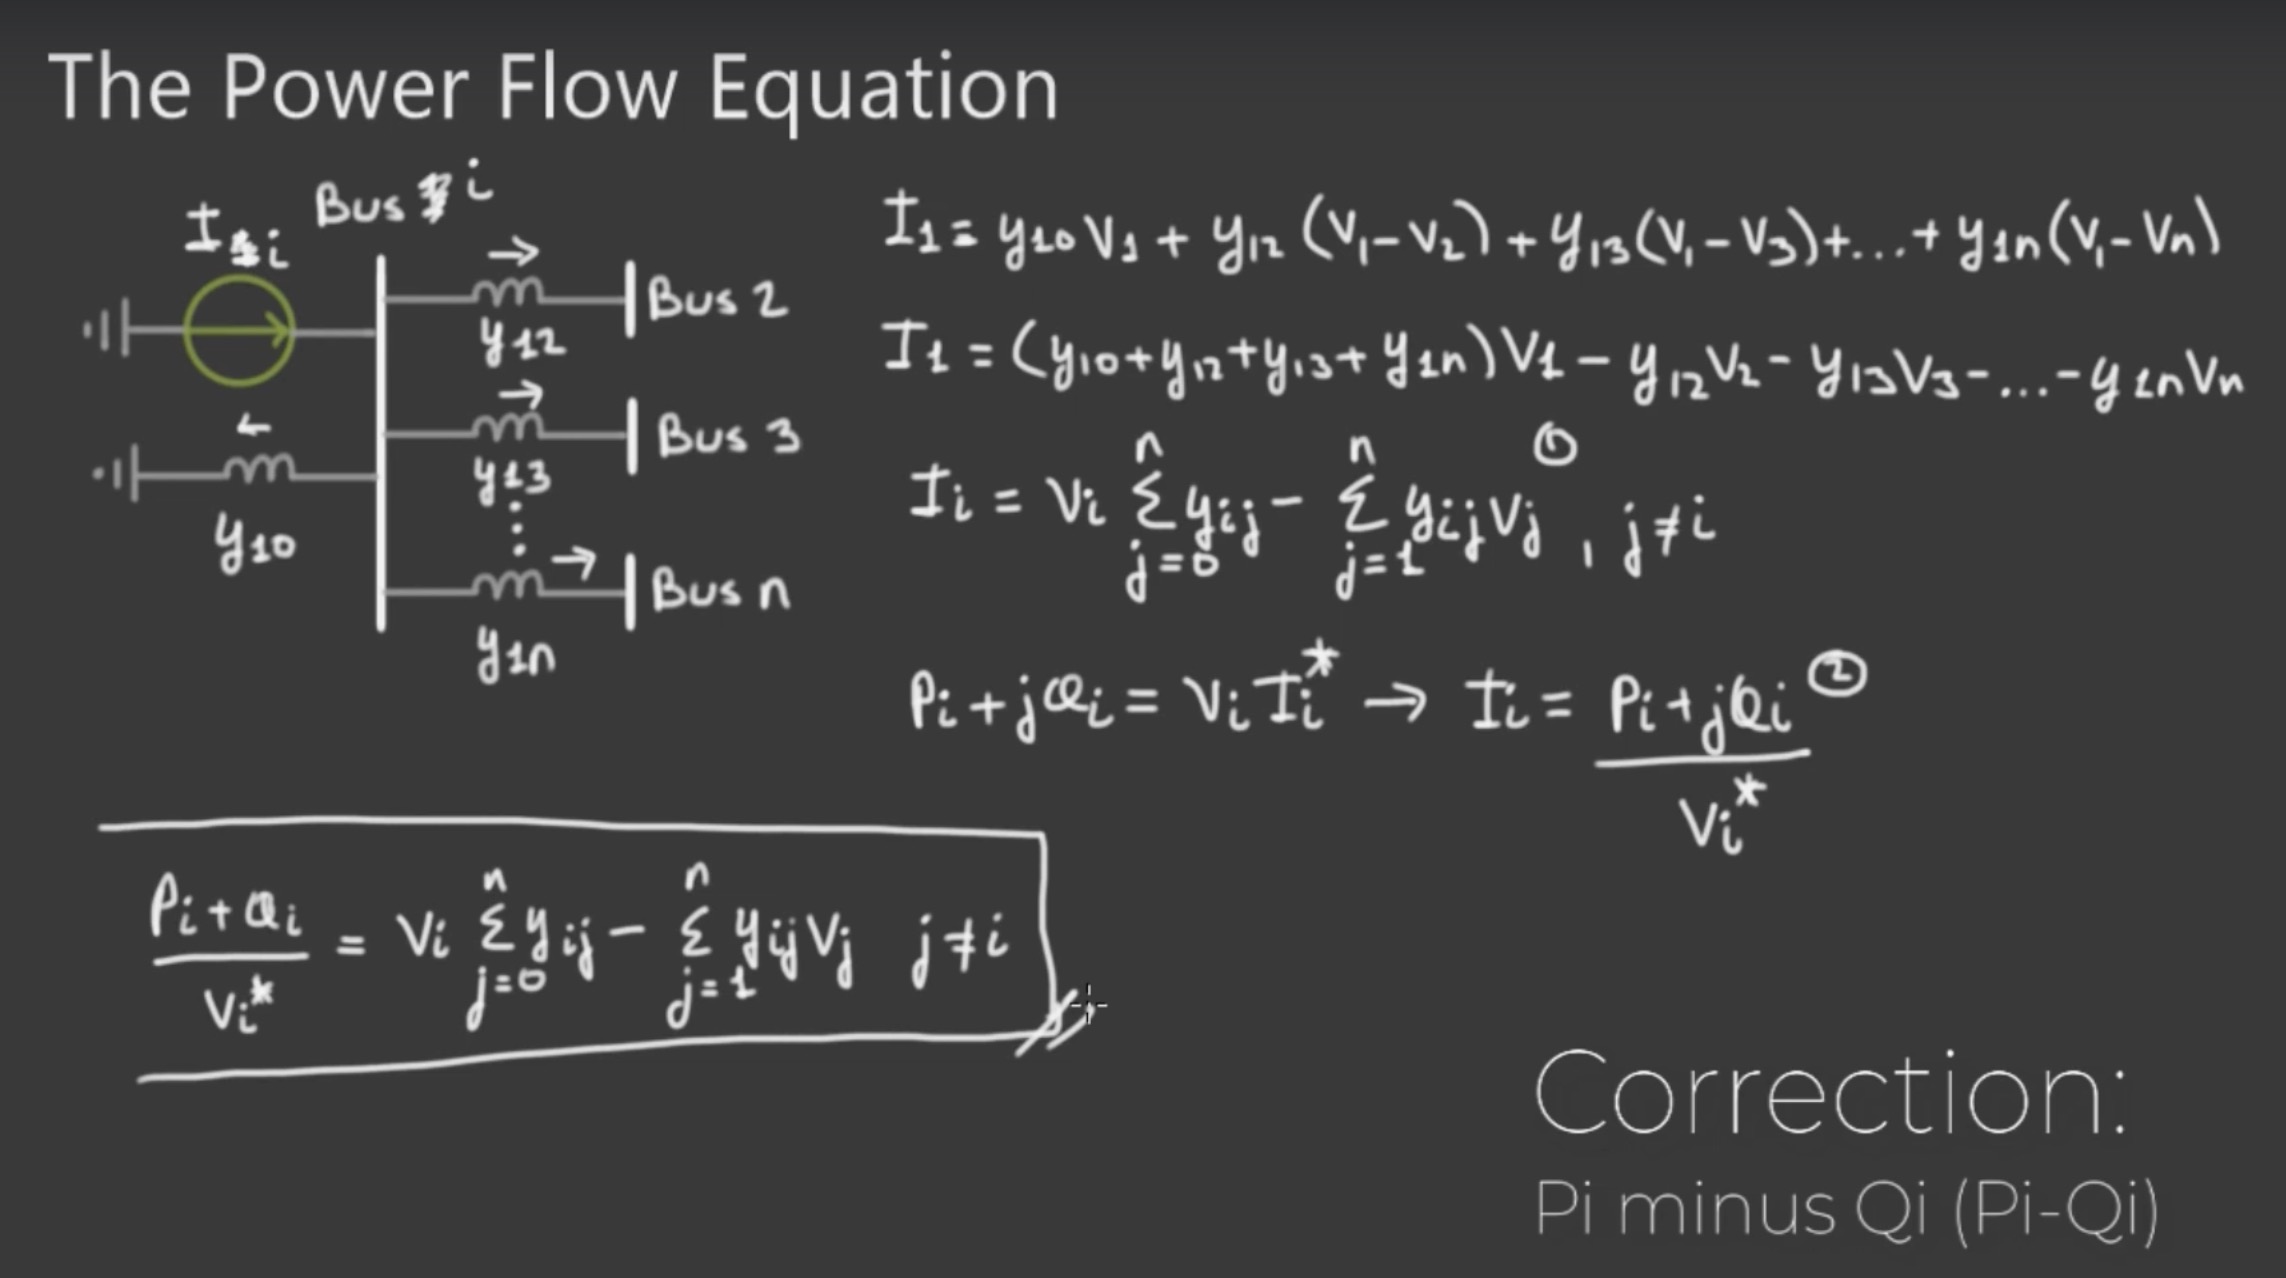 The Power Flow Equation
Bus i
I i
y12
Bus 2
y13
Bus 3
y10
⋮
y1n
Bus n
I1 = y10 V1 + y12 (V1 - V2) + y13 (V1 - V3) + ... + y1n (V1 - Vn)
I1 = (y10 + y12 + y13 + y1n) V1 - y12 V2 - y13 V3 - ... - y1n Vn
Ii = Vi Σ_{j=0}^{n} yij - Σ_{j=1}^{n} yij Vj , j ≠ i ①
Pi + jQi = Vi Ii* → Ii = (Pi + jQi) / Vi* ②
(Pi + Qi) / Vi* = Vi Σ_{j=0}^{n} yij - Σ_{j=1}^{n} yij Vj j ≠ i
Correction:
Pi minus Qi (Pi-Qi)